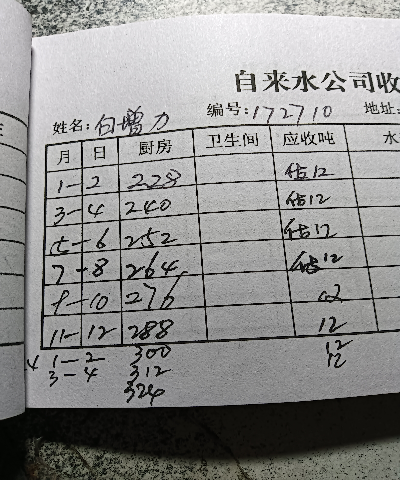 自来水公司收
姓名:白增力 编号:172710 地址:
月 日 厨房 卫生间 应收吨 水
1-2 228 估12
3-4 240 估12
5-6 252 估12
7-8 264 估12
9-10 276 12
11-12 288 12
4 1-2 300 12
3-4 312 12
324